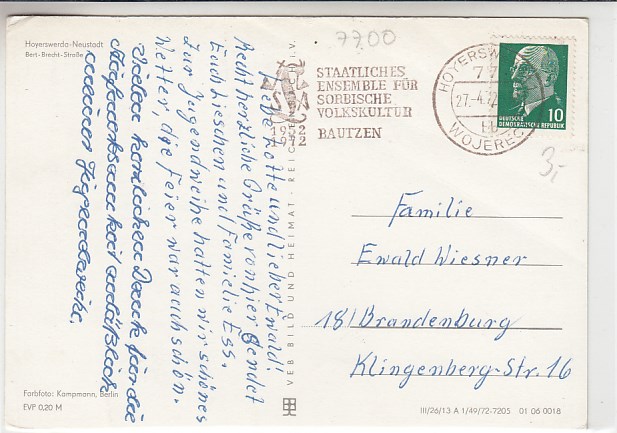 Hoyerswerda-Neustadt
Bert-Brecht-Straße
7700
STAATLICHES
ENSEMBLE FÜR
SORBISCHE
VOLKSKULTUR
BAUTZEN
1952
1972
HOYERSW
77
27.-4.72
bb
WOJEREC
10
DEUTSCHE
DEMOKRATISCHE REPUBLIK
3,-
Liebe Lotte und lieber Ewald!
Recht herzliche Grüße von hier sendet
Euch Lieschen und Familie Ess.
Zur Jugendweihe hatten wir schönes
Wetter, die Feier war auch schön.
Vielen herzlichen Dank für die
Aufmerksamkeit anläßlich
meiner Jugendweihe.
VEB BILD UND HEIMAT · REICHENBACH I. V.
Familie
Ewald Wiesner
18 / Brandenburg
Klingenberg-Str. 16
Farbfoto: Kampmann, Berlin
EVP 0,20 M
III/26/13 A 1/49/72-7205 01 06 0018